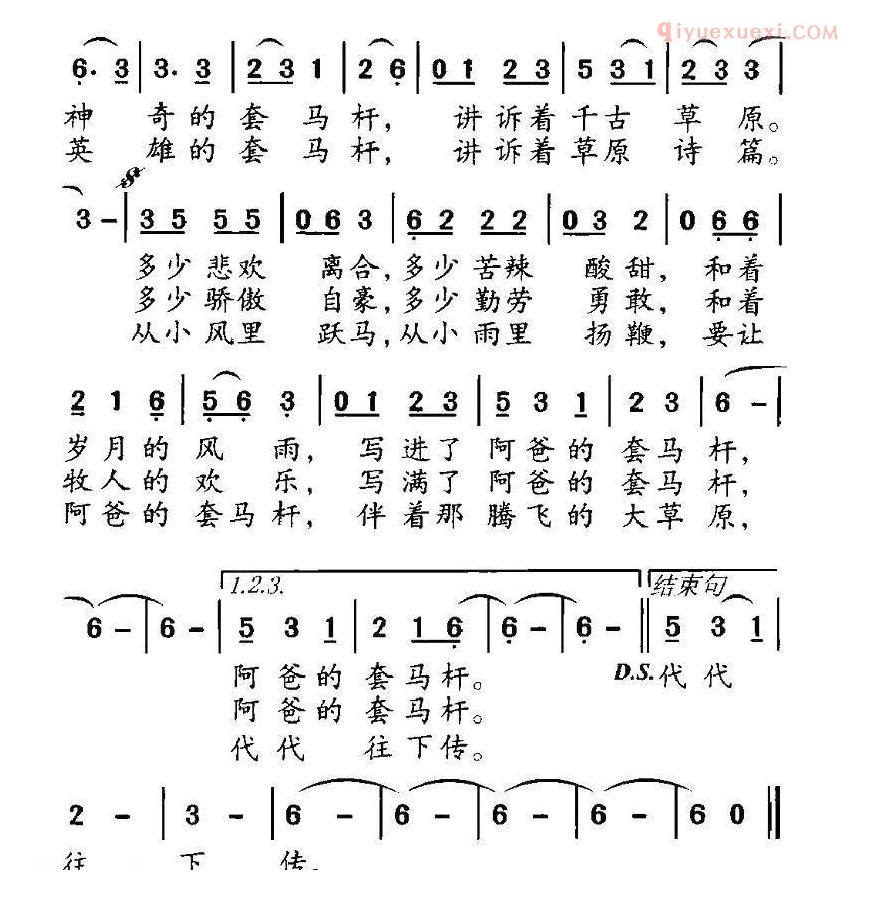 qiyuexuexi.COM
6. 3 | 3. 3 | 2 3 1 | 2 6 | 0 1 2 3 | 5 3 1 | 2 3 3 |
神 奇的 套 马 杆， 讲诉着千古 草 原。
英 雄的 套 马 杆， 讲诉着草原 诗 篇。
3 - | 3 5 5 5 | 0 6 3 | 6 2 2 2 | 0 3 2 | 0 6 6 |
多少悲欢 离合，多少苦辣 酸甜，和着
多少骄傲 自豪，多少勤劳 勇敢，和着
从小风里 跃马，从小雨里 扬鞭，要让
2 1 6 | 5 6 3 | 0 1 2 3 | 5 3 1 | 2 3 | 6 - |
岁月的 风 雨， 写进了 阿爸的 套马杆，
牧人的 欢 乐， 写满了 阿爸的 套马杆，
阿爸的 套马杆， 伴着那 腾飞的 大草原，
1.2.3. 结束句
6 - | 6 - | 5 3 1 | 2 1 6 | 6 - | 6 - || 5 3 1 |
阿爸的 套马杆。 D.S. 代代
阿爸的 套马杆。
代代 往下传。
2 - | 3 - | 6 - | 6 - | 6 - | 6 - | 6 0 ||
往 下 传。